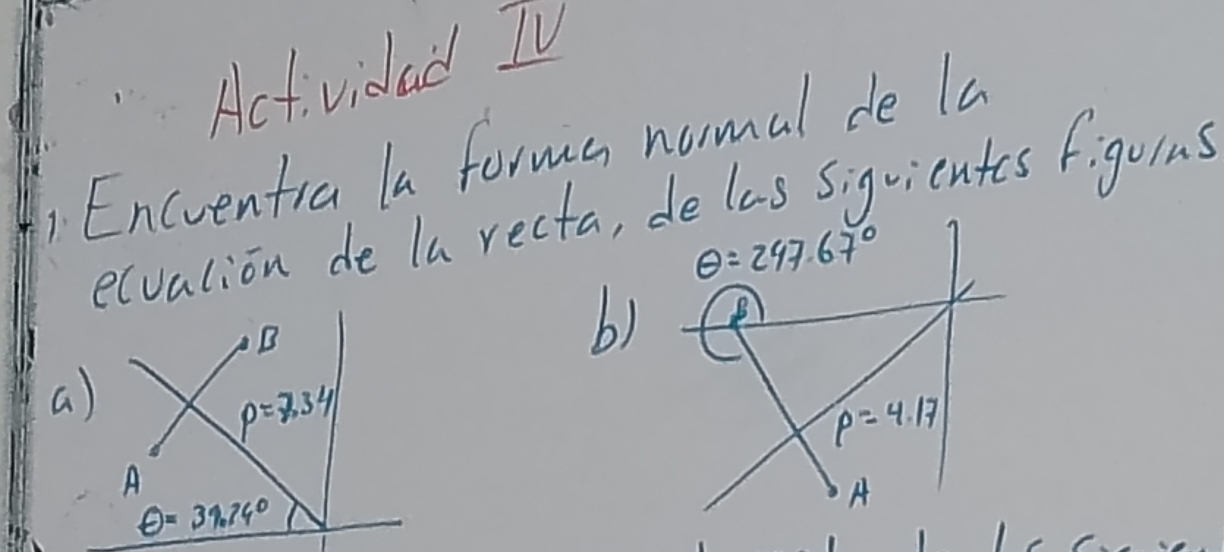 Actividad IV
1. Encuentra la forma normal de la
ecuación de la recta, de las siguientes figuras
a)
B
p=7.34
A
b)
θ=247.67°
B
p=4.17
A